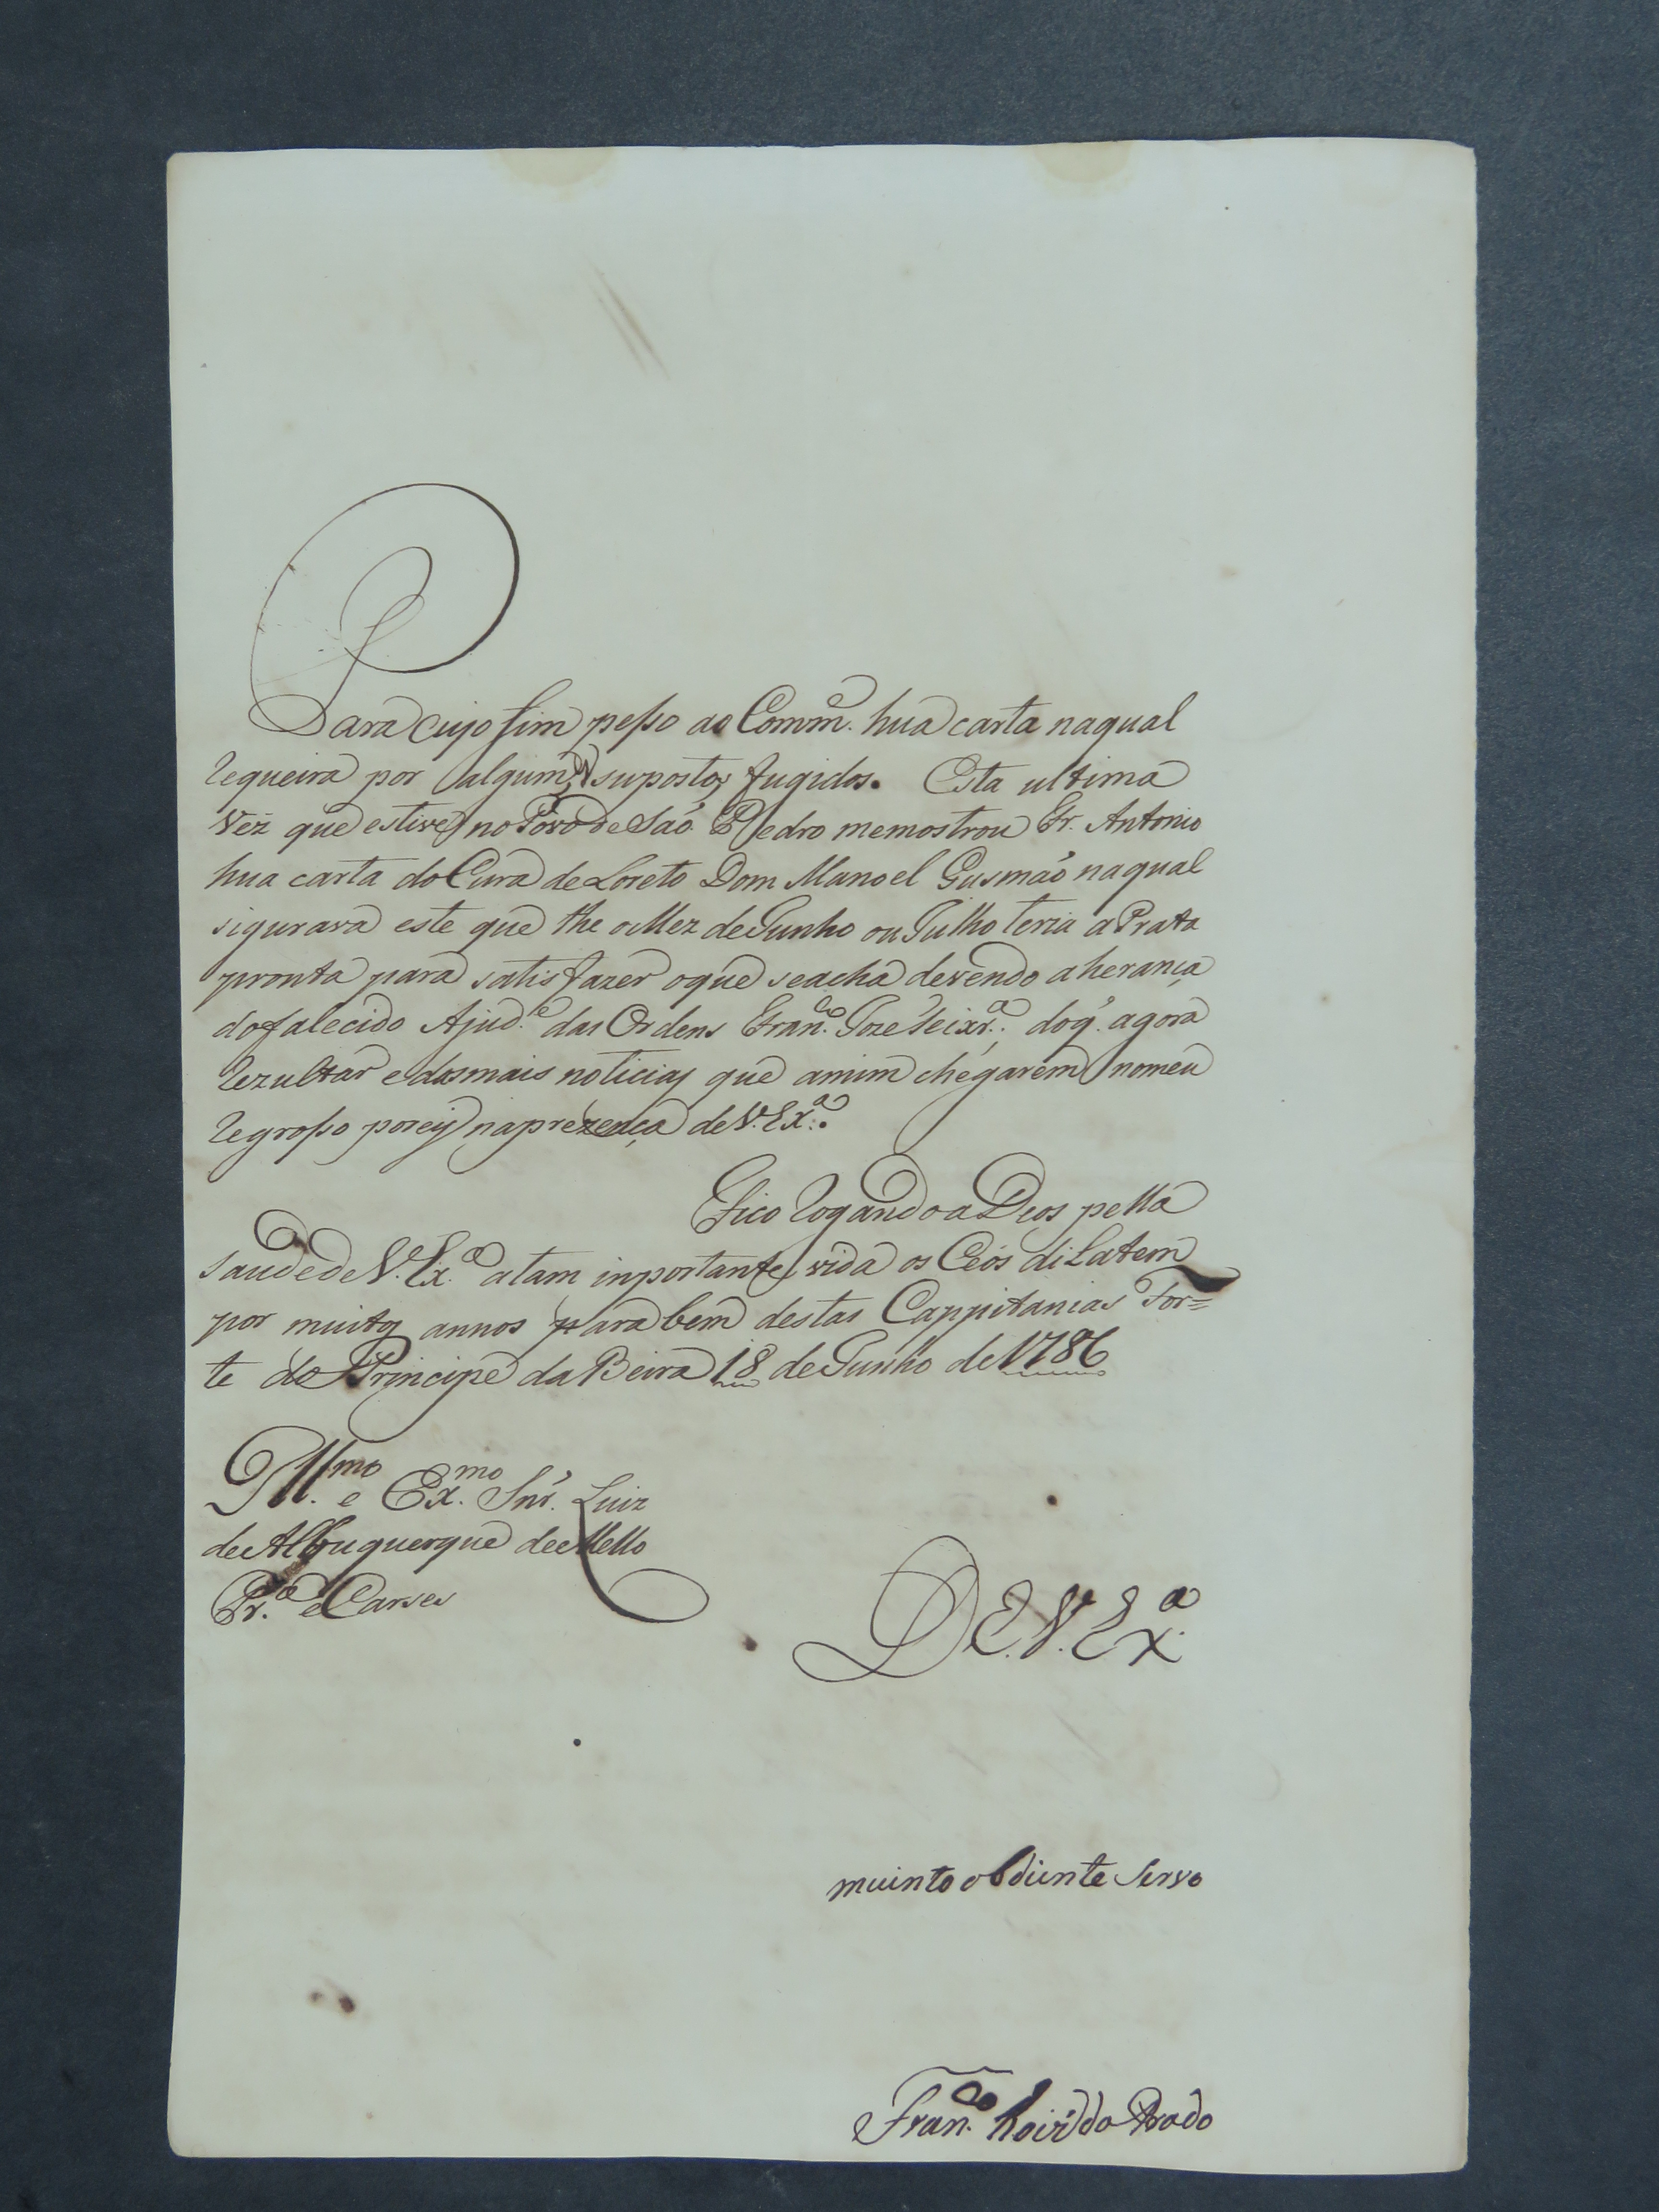 Para cujo fim pesso ao Comm.e hua carta naqual
requeira por algums supostos fugidos. Esta ultima
vez que estive no Povo de São Pedro memostrou Fr. Antonio
hua carta do Cura de Loreto Dom Manoel Gusmão naqual
sigurava este que the o Mez de Junho ou Julho teria a Prata
pronta para satisfazer oque seacha devendo a herança
do falecido Ajud.e das Ordens Fran.co Joze Teixr.a, doq. agora
rezultar e dasmais noticias que amim chegarem nomeu
regrosso porey naprezença de V. Ex.a.
Fico rogando a Deos pella
saude de V. Ex.a a tam inportante vida os Ceos dilatem
por muitos annos para bem destas Cappitanias For=
te do Principe da Beira 18 de Junho de 1786
Ill.mo e Ex.mo Snr. Luiz
de Albuquerque de Mello
Pr.a e Carses
De V. Ex.a
muinto obdiente Servo
Fran.co Roiz do Prado